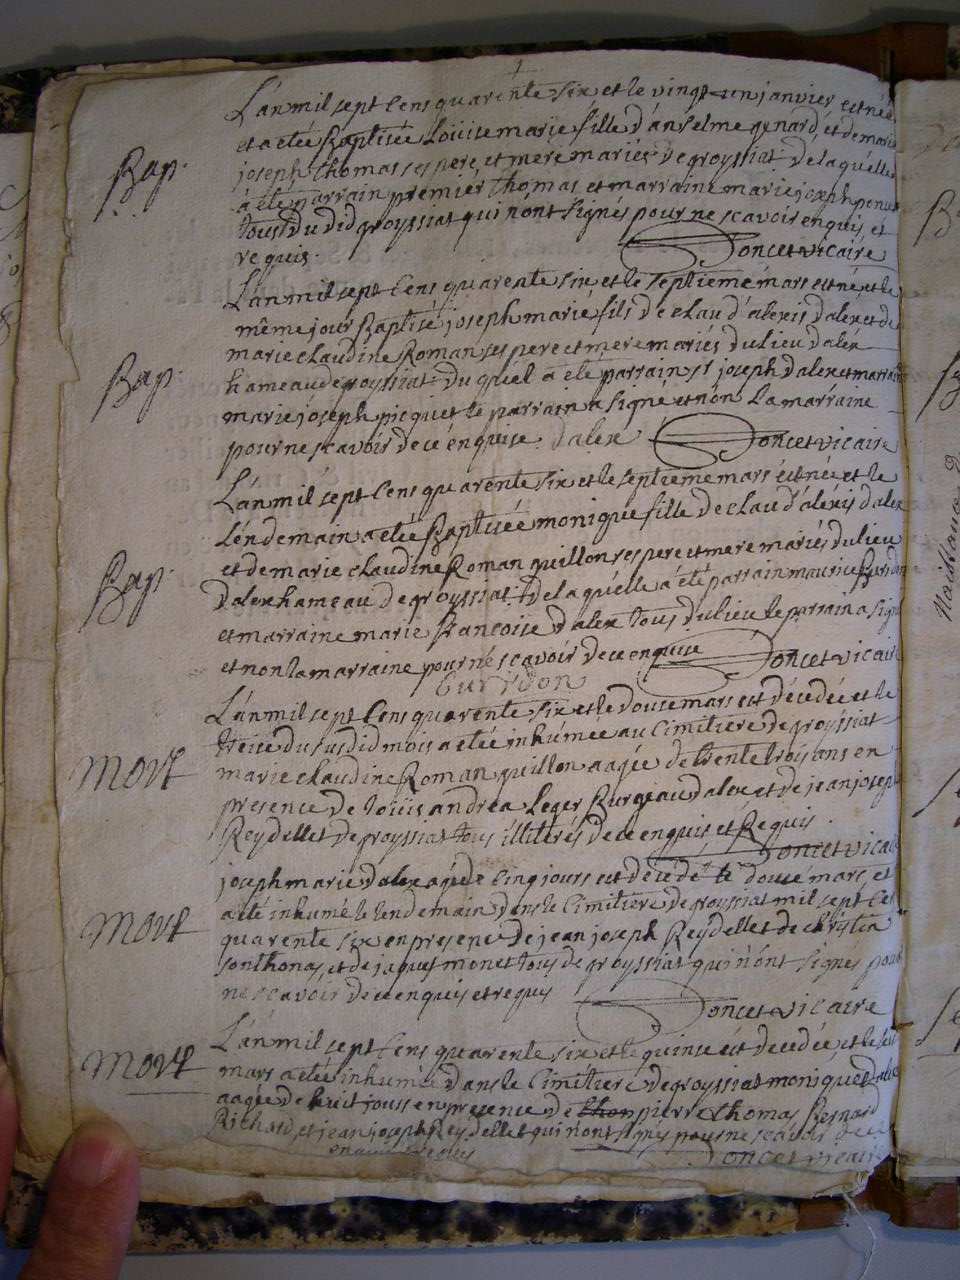 1
L'an mil sept Cens quarente six et le vingt un janvier est née
et a étée Baptisée Louise marie fille d'anselme genard, et de marie
Bap.
joseph thomas ses pere, et mere mariés de groyssiat de la quelle
a été parrain premier thomas et marraine marie joseph poncet
tous du did groyssiat qui n'ont signés pour ne scavoir enquis, et
requis. Joncet vicaire
L'an mil sept Cens quarente six et le septieme mars est né et le
même jour Baptisé joseph marie fils de claud d'alexis dalex et de
marie claudine Roman ses pere et mere mariés du lieu dalex
Bap.
hameau de groyssiat du quel a été parrain joseph dalex et marraine
marie joseph picquet le parrain a signé et non la marraine
pour ne scavoir de ce enquise dalex Joncet vicaire
L'an mil sept Cens quarente six et le septieme mars est née et le
lendemain a étée Baptisée monique fille de claud d'alexis dalex
et de marie claudine Roman guillon ses pere et mere mariés du lieu
Bap.
dalex hameau de groyssiat de la quelle a été parrain maurice
et marraine marie francoise dalex tous du lieu le parrain a signé
et non la marraine pour ne scavoir de ce enquise Joncet vicaire
L'an mil sept Cens quarente six et le douse mars est décédée et le
treise du susdid mois a étée inhumée au Cimitiere de groyssiat
Mort
marie claudine Roman guillon aagée de trente trois ans en
presence de andréa leger Burgeaud dalex et de jean joseph
Reydellet de groyssiat tous illitirés de ce enquis et Requis.
Joncet vicaire
joseph marie dalex agé de Cinq jours est décédé le douse mars et
a été inhumé le lendemain dans le Cimitiere de groyssiat mil sept Cens
Mort
quarente six en presence de jean joseph Reydellet de christin
sonthonas, et de jaques monet tous de groyssiat qui n'ont signés pour
ne scavoir de ce enquis et requis Joncet vicaire
L'an mil sept Cens quarente six et le quinse est decedée, et le
Mort
mars a étée inhumée dans le Cimitiere de groyssiat monique dalex
aagée de huit jours en presence de pierre thomas Bernard
Richard et jean joseph Reydellet qui n'ont signés pour ne scavoir de ce
enquis et requis Joncet vicaire